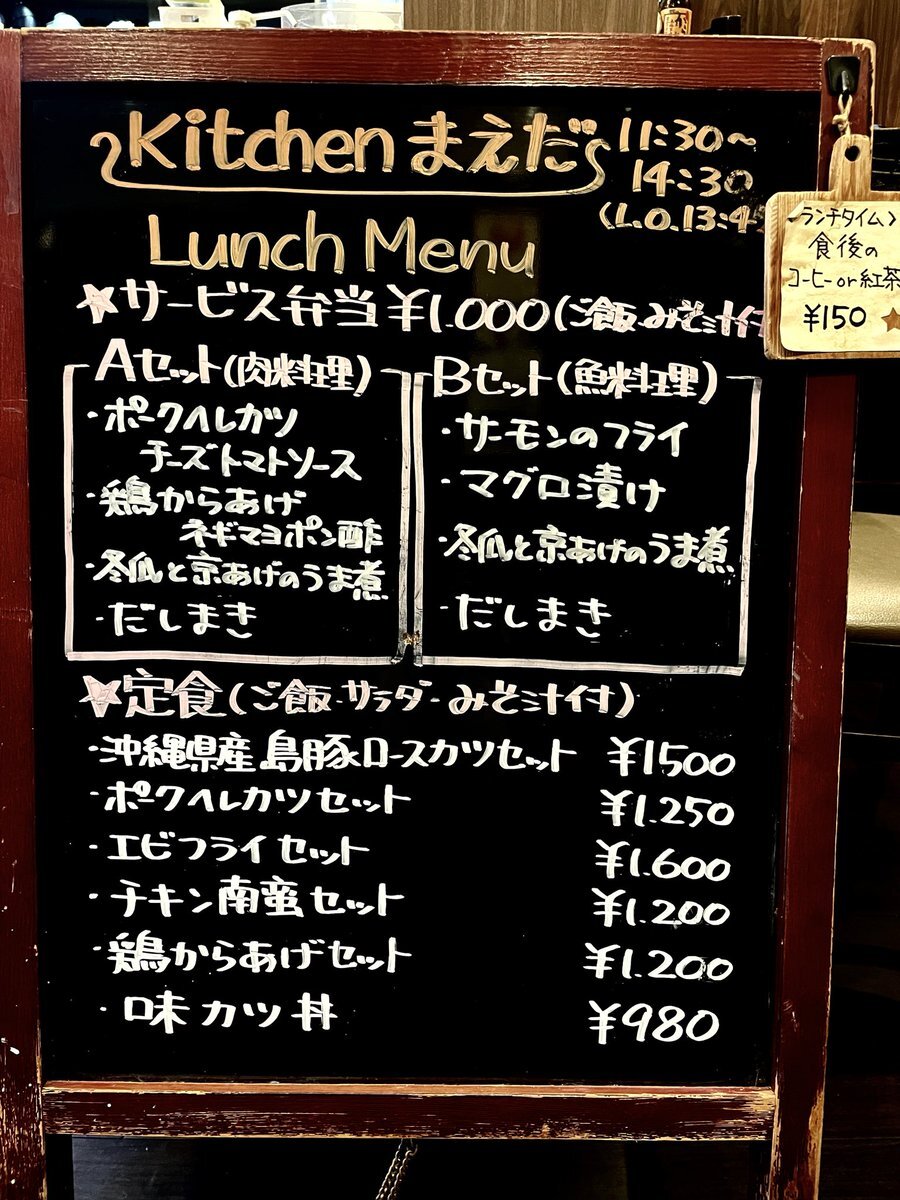 Kitchen まえだ
11:30〜
14:30
(L.O.13:45
Lunch Menu
〈ランチタイム〉
食後の
コーヒー or 紅茶
¥150
★サービス弁当 ¥1.000(ご飯.みそ汁付
Aセット(肉料理)
・ポークヘレカツ
チーズトマトソース
・鶏からあげ
ネギマヨポン酢
・冬瓜と京あげのうま煮
・だしまき
Bセット(魚料理)
・サーモンのフライ
・マグロ漬け
・冬瓜と京あげのうま煮
・だしまき
★定食(ご飯・サラダ・みそ汁付)
・沖縄県産島豚ロースカツセット ¥1500
・ポークヘレカツセット ¥1.250
・エビフライセット ¥1.600
・チキン南蛮セット ¥1.200
・鶏からあげセット ¥1.200
・味カツ丼 ¥980